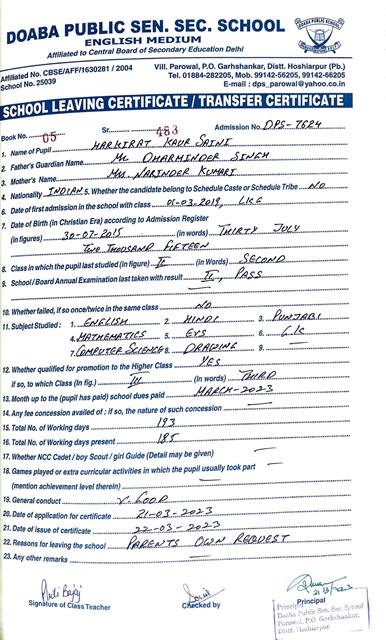 DOABA PUBLIC SEN. SEC. SCHOOL
ENGLISH MEDIUM
Affiliated to Central Board of Secondary Education Delhi
Affiliated No. CBSE/AFF/1630281 / 2004
School No. 25039
Vill. Parowal, P.O. Garhshankar, Distt. Hoshiarpur (Pb.)
Tel. 01884-282205, Mob. 99142-56205, 99142-66205
E-mail : dps_parowal@yahoo.co.in
SCHOOL LEAVING CERTIFICATE / TRANSFER CERTIFICATE
Book No. 05 Sr. 483 Admission No. DPS-7624
1. Name of Pupil HARKIRAT KAUR SAINI
2. Father's Guardian Name Mr. DHARMINDER SINGH
3. Mother's Name Mrs. NARINDER KUMARI
4. Nationality INDIAN 5. Whether the candidate belong to Schedule Caste or Schedule Tribe NO
6. Date of first admission in the school with class 01-03-2019, LKG
7. Date of Birth (in Christian Era) according to Admission Register
(in figures) 30-07-2015 (in words) THIRTY JULY
TWO THOUSAND FIFTEEN
8. Class in which the pupil last studied (in figure) II (in words) SECOND
9. School / Board Annual Examination last taken with result II, PASS
10. Whether failed, if so once/twice in the same class NO
11. Subject Studied : 1. ENGLISH 2. HINDI 3. PUNJABI
4. MATHEMATICS 5. EVS 6. G.K
7. COMPUTER SCIENCE 8. DRAWING 9. —
12. Whether qualified for promotion to the Higher Class YES
if so, to which Class (In fig.) III (In words) THIRD
13. Month up to the (pupil has paid) school dues paid MARCH-2023
14. Any fee concession availed of : if so, the nature of such concession —
15. Total No. of Working days 193
16. Total No. of Working days present 185
17. Whether NCC Cadet / boy Scout / girl Guide (Detail may be given) —
18. Games played or extra curricular activities in which the pupil usually took part
(mention achievement level therein) —
19. General conduct V. GOOD
20. Date of application for certificate 21-03-2023
21. Date of issue of certificate 22-03-2023
22. Reasons for leaving the school PARENTS OWN REQUEST
23. Any other remarks —
Signature of Class Teacher
Checked by
Principal
Principal
Doaba Public Sen. Sec. School
Parowal, P.O. Garhshankar,
Distt. Hoshiarpur